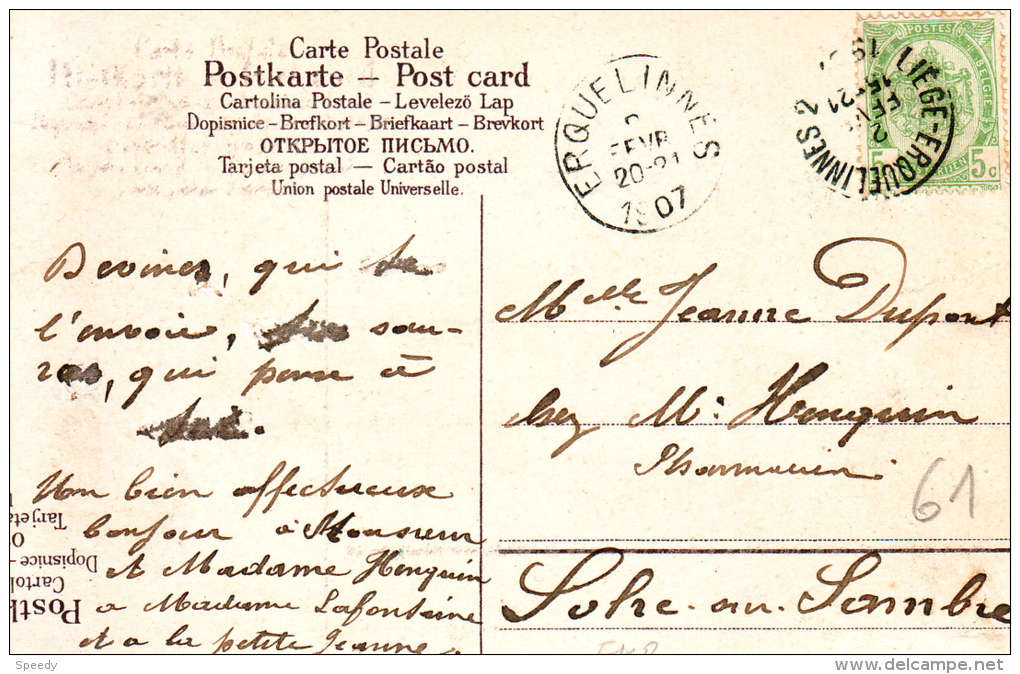 Carte Postale
Postkarte — Post card
Cartolina Postale – Levelező Lap
Dopisnice – Brefkort – Briefkaart – Brevkort
ОТКРЫТОЕ ПИСЬМО.
Tarjeta postal — Cartão postal
Union postale Universelle.
ERQUELINNES
FEVR
20-21
1907
LIÉGE-ERQUELINNES 2
2 FEVR
15-21
POSTES
BELGIE
5 5c
Devines, qui
l'envoie, sau-
ras, qui pense à
toi.
Un bien affectueux
bonjour à Monsieur
et Madame Henquin
à Madame Lafontaine
et a la petite Jeanne.
Mlle Jeanne Dupont
chez Mr Henquin
Pharmacien
61
Solre-sur-Sambre
Tarjeta
Dopisnice
Cartol
Postk
Speedy
delcampe.net